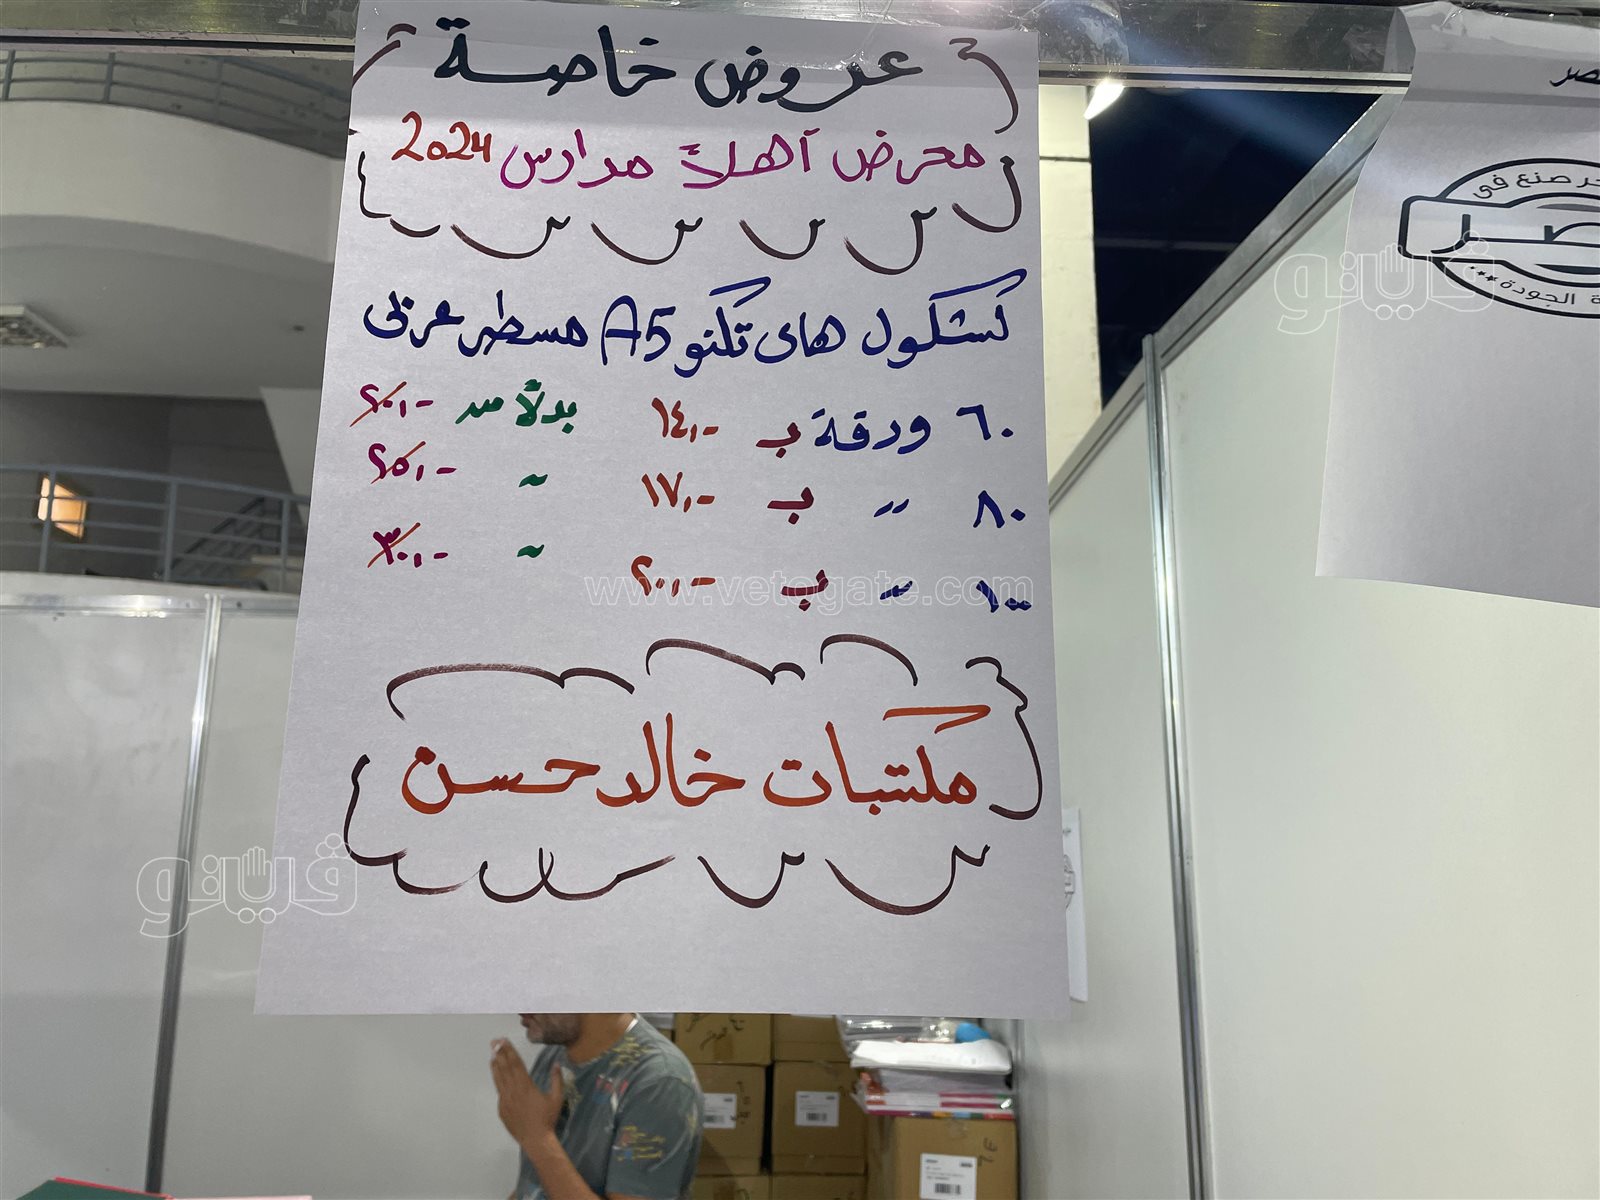 عروض خاصة
معرض أهلاً مدارس 2024
كشكول هاى تكنو A5 مسطر عربى
٦٠ ورقة ب ١٤,٠٠ بدلاً من ٢٠,٠٠
٨٠ 〃 ب ١٧,٠٠ 〃 ٢٥,٠٠
١٠٠ 〃 ب ٢٠,٠٠ 〃 ٣٠,٠٠
مكتبات خالد حسن
www.vetogate.com
ڤيتو
ڤيتو
صنع فى
الجودة